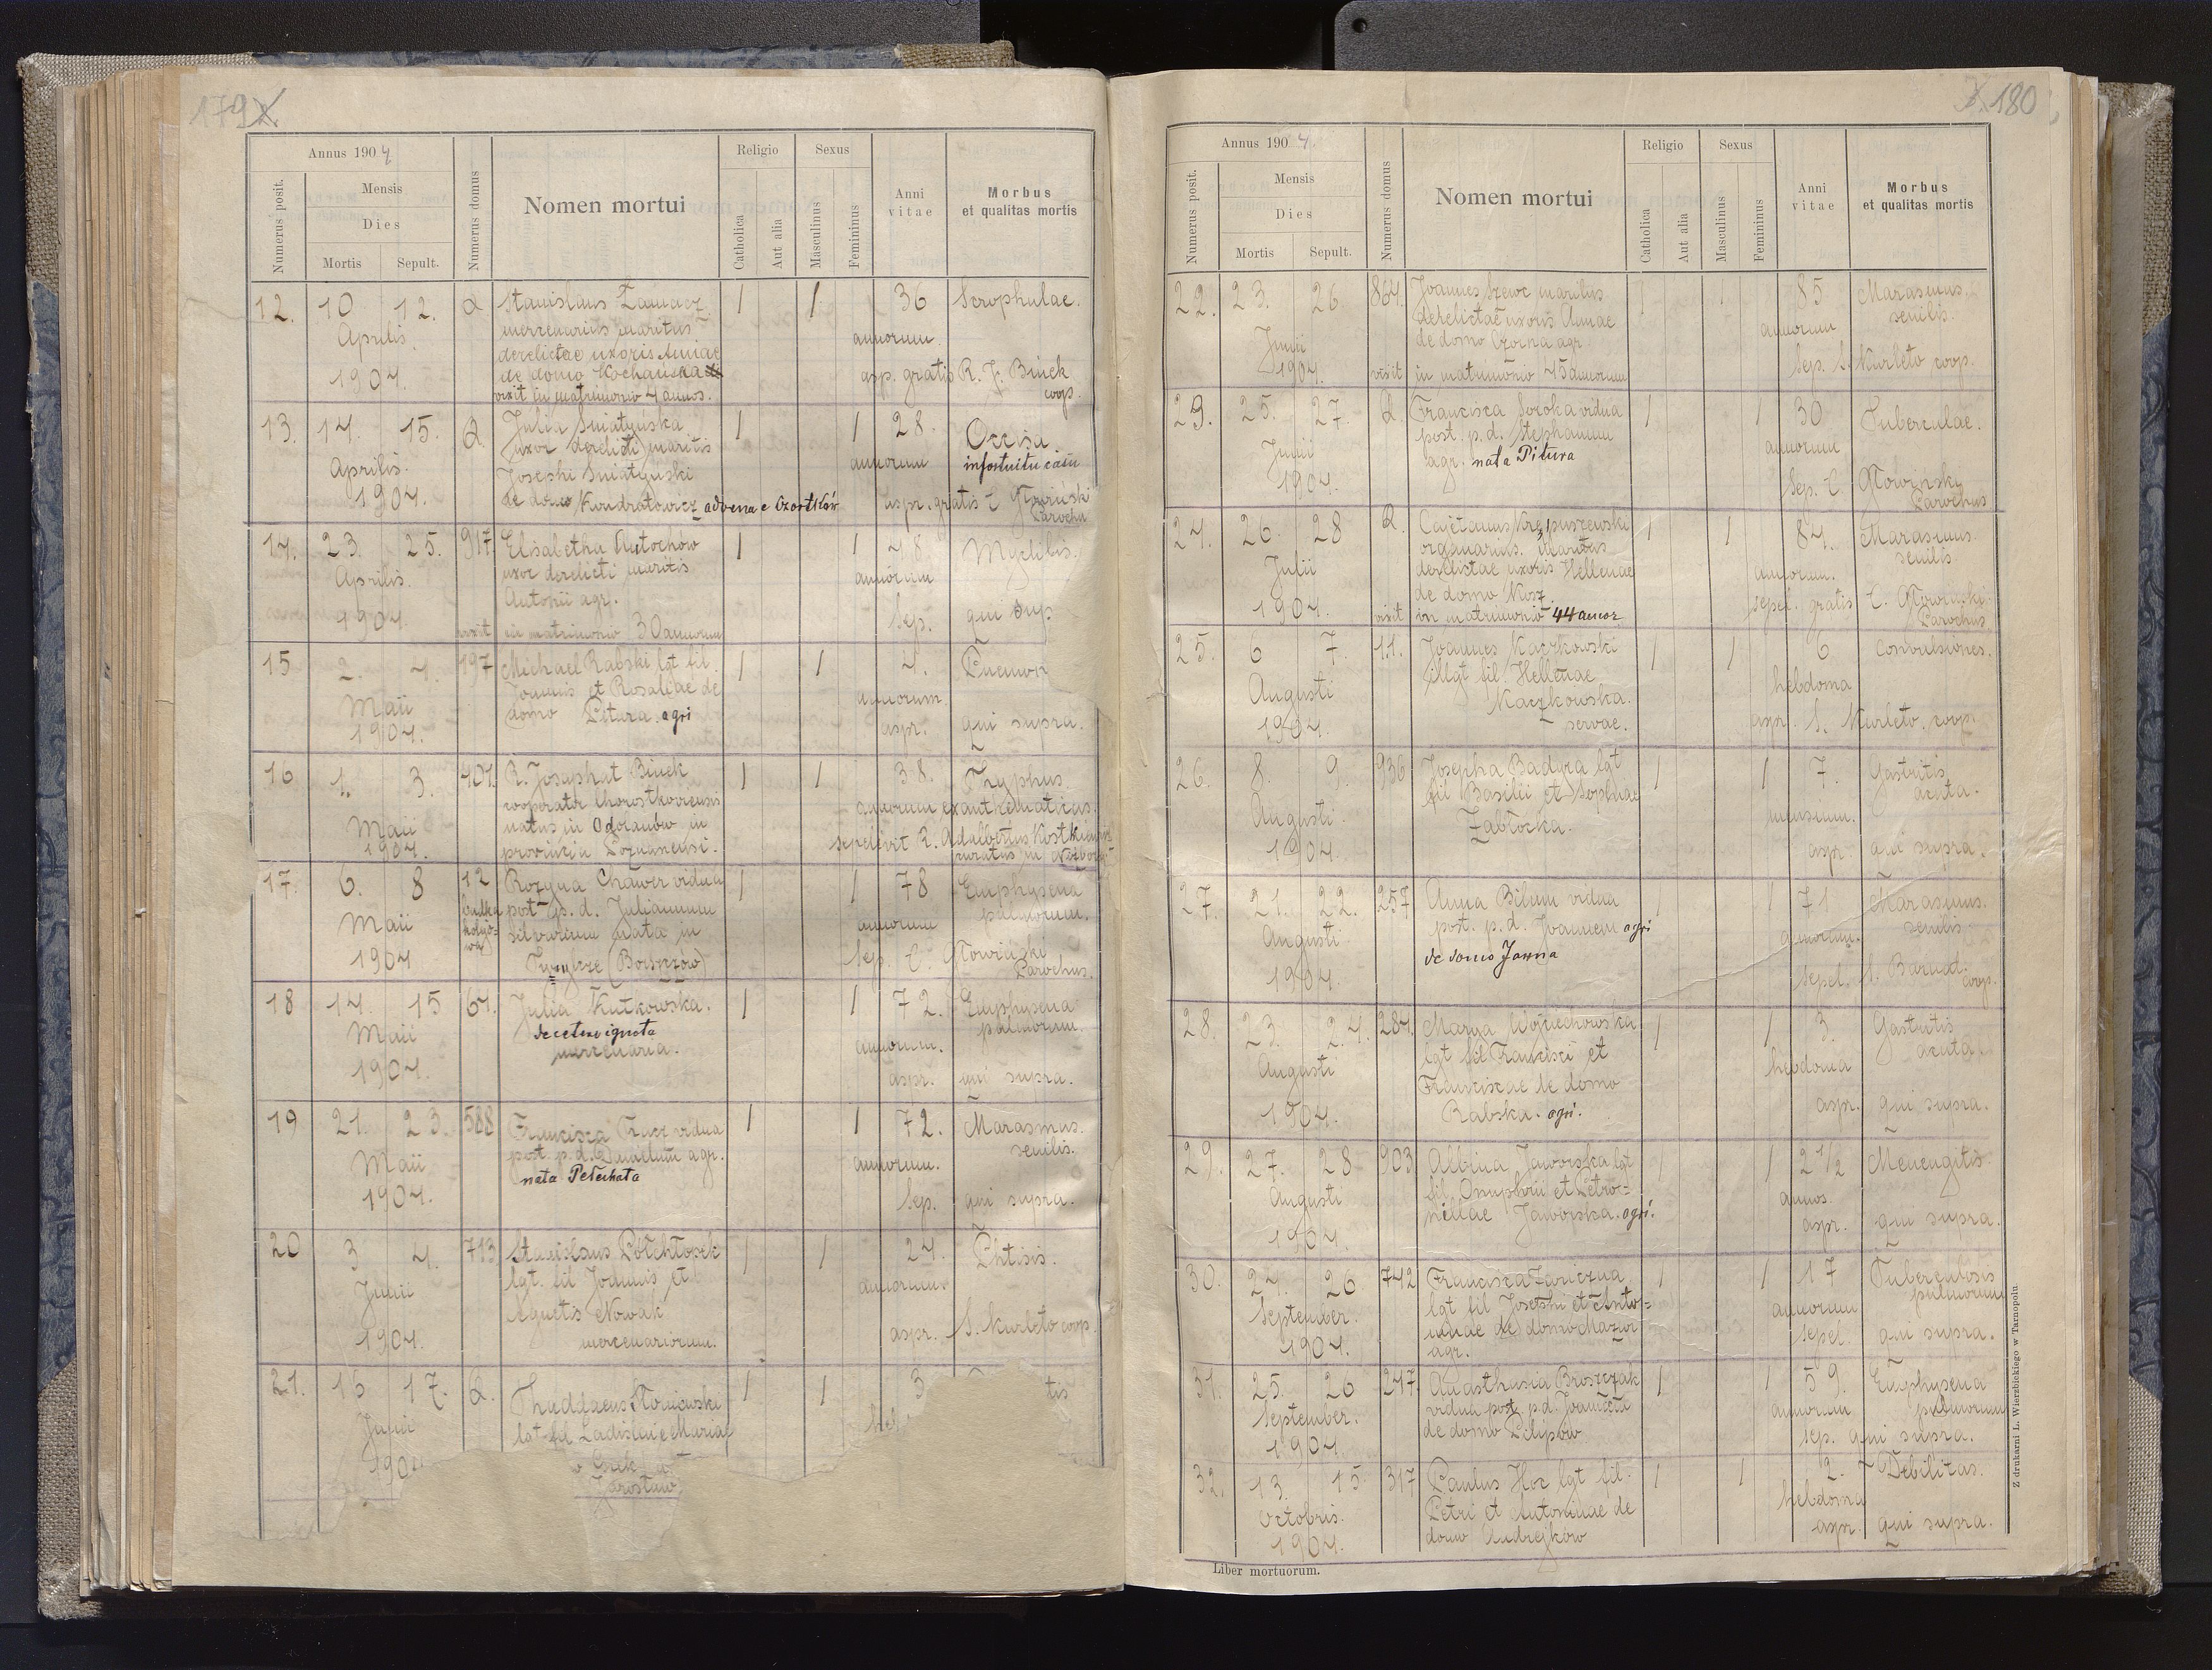 179
Annus 1904
Numerus posit.
Mensis
Dies
Mortis
Sepult.
Numerus domus
Nomen mortui
Religio
Catholica
Aut alia
Sexus
Masculinus
Femininus
Anni vitae
Morbus et qualitas mortis
12. 10 12. 1 1 36 Scrophulae.
Aprilis.
1904.
Stanislaus
mercenarius maritus
derelictae uxoris Anniae
de domo Kochanska
vixit in matrimonio 4 annos.
annorum.
asp. gratis R. J. Binek
coop.
13. 14. 15. 1 1 28.
Aprilis.
1904.
Julia Sniatynska
uxor derelicti maritis
Josephi Sniatynski
de domo Kondratowicz advena e
annorum
Occisa
infortuitu casu
aspr. gratis C. Głowiński
Parochu
14. 23. 25. 917. 1 1 48.
Aprilis.
1904
Elisabetha
uxor derelicti maritis
Antonii agr.
vixit in matrimonio 30 annorum
annorum
Sep. qui sup
15 2. 4. 197 1 1 4.
Maii
1904.
Michael Rabski lgt fil.
Joannis et Rosaliae de
domo Pitura. agri
annorum
aspr. qui supra.
16 1. 3. 401. 1 1 38.
Maii
1904.
R. Josaphat Binek
cooperator Chorostkoviensis
natus in Odoranów in
provincia Poznanensi.
Thyphus
annorum exanthematicus.
sepelevit R. Adalbertus
curatus in
17. 6. 8 12 1 1 78
Maii
1904
Rozyna Chawer vidua
post p. d. Julianum
nata in
Emphysena
pulmorum.
annorum
Sep. C. Głowiński
Parochus.
18 14. 15 61. 1 1 72.
Maii
1904.
Julia Kutkowska.
de cetero ignota
mercenaria.
Emphysena
pulmorum.
annorum.
aspr. qui supra.
19 21. 23. 588 1 1 72.
Maii
1904.
Francisca Tracz vidua
post. p. d. Danielum agr.
nata Petechata
Marasmus.
senilis.
annorum.
Sep. qui supra.
20 3 4. 713 1 1 24.
Junii
1904.
Stanislaus Półchłopek
lgt. fil Joannis et
Agnetis Nowak
mercenariorum.
Phtisis.
annorum
aspr. S. Kurleto coop.
21. 16 17. 1 1 3
Junii
Thaddaeus
lgt fil Ladislai e Mariae
Jarosław
heb
tis
180
Annus 1904.
Numerus posit.
Mensis
Dies
Mortis
Sepult.
Numerus domus
Nomen mortui
Religio
Catholica
Aut alia
Sexus
Masculinus
Femininus
Anni vitae
Morbus et qualitas mortis
22. 23. 26. 864. 1 1 85
Junii
1904.
Joannes Szewc maritus
derelictae uxoris Annae
de domo Czorna agr.
vixit in matrimonio 45 annorum
Marasmus.
senilis.
annorum
Sep. S. Kurleto coop.
23. 25. 27. 1 1 30
Julii
1904.
Francisca Soroka vidua
post. p. d. Stephanum
agr. nata Pitura
Tuberculae.
annorum
Sep. C. Głowinsky
Parochus
24. 26. 28 1 1 84.
Julii
1904.
organarius. Maritus
derelictae uxoris Hellenae
de domo Kosz.
vixit in matrimonio 44 annor
Marasmus
senilis.
annorum.
sepel. gratis C. Głowinski.
Parochus
25. 6 7. 11. 1 1 6
Augusti
1904.
Joannes Kaczkowski
illgt fil. Hellenae
Kaczkowska.
servae.
Convulsiones.
hebdoma
aspr. S. Kurleto. coop.
26. 8. 9. 936 1 1 7.
Augusti
1904.
Josepha Badyra lgt
fil Basilii et Sophiae
Zabłocka.
Gastritis
acuta.
mensium.
aspr. qui supra.
27. 21. 22. 257 1 1 71
Augusti
1904.
Anna Bilum vidua
post. p. d. Joannem agri
de domo Janna
Marasmus.
senilis.
annorum.
sepel. coop.
28. 23. 24. 284. 1 1 3.
Augusti
1904.
Marya Wojciechowska
lgt fil Francisci et
Franciscae de domo
Rabska. agri.
Gastritis
acuta.
hebdoma
aspr. qui supra.
29. 27. 28 903 1 1 2 1/2
Augusti
1904.
Albina Jaworska lgt
fil Onuphrii et Petro-
nellae Jaworska. agri.
Menengitis.
annos.
aspr. qui supra.
30. 24. 26 742 1 1 17
September.
1904.
Francisca
lgt fil Josephi et Anto-
ninae de domo Mazur
agr.
Tuberculosis
pulmorum
annorum
sepel. qui supra.
31. 25. 26 247. 1 1 59.
September.
1904.
Anasthasia Broszczak
vidua post. p. d. Joannem
de domo Pilipów
Emphysena
pulmorum
annorum
sep. qui supra.
32. 13. 15 317 1 1 2.
Octobris.
1904.
Paulus Hoc lgt fil.
Petri et Antoninae de
domo Andrejków
Debilitas.
hebdoma
aspr. qui supra.
Liber mortuorum.
Z drukarni L. Wierzbickiego w Tarnopolu.